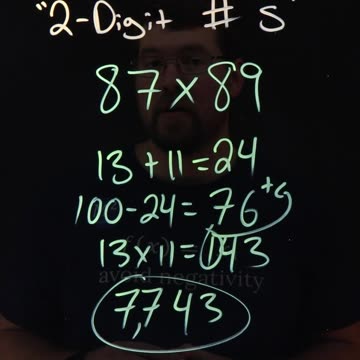 "2-Digit #s"
87×89
13+11=24
100-24=76 +1
13×11=143
f(x)
avoid negativity
7,743